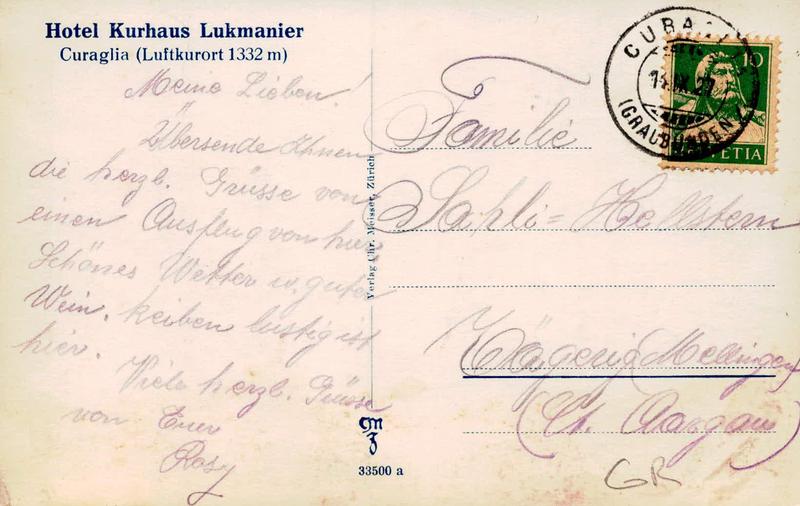 Hotel Kurhaus Lukmanier
Curaglia (Luftkurort 1332 m)
Meine Lieben!
Übersende Ihnen
die herzl. Grüsse von
einen Ausflug von hier
Schönes Wetter u. guter
Wein. keiben lustig ist
hier.
Viele herzl. Grüsse
von Euer
Rosy
Verlag Chr. Meisser, Zürich
33500 a
CURAGLIA
14.IX.27
(GRAUBÜNDEN)
10
HELVETIA
Familie
Sahli=Hellstern
Hägerig (Mellingen)
Ct. Aargau
GR